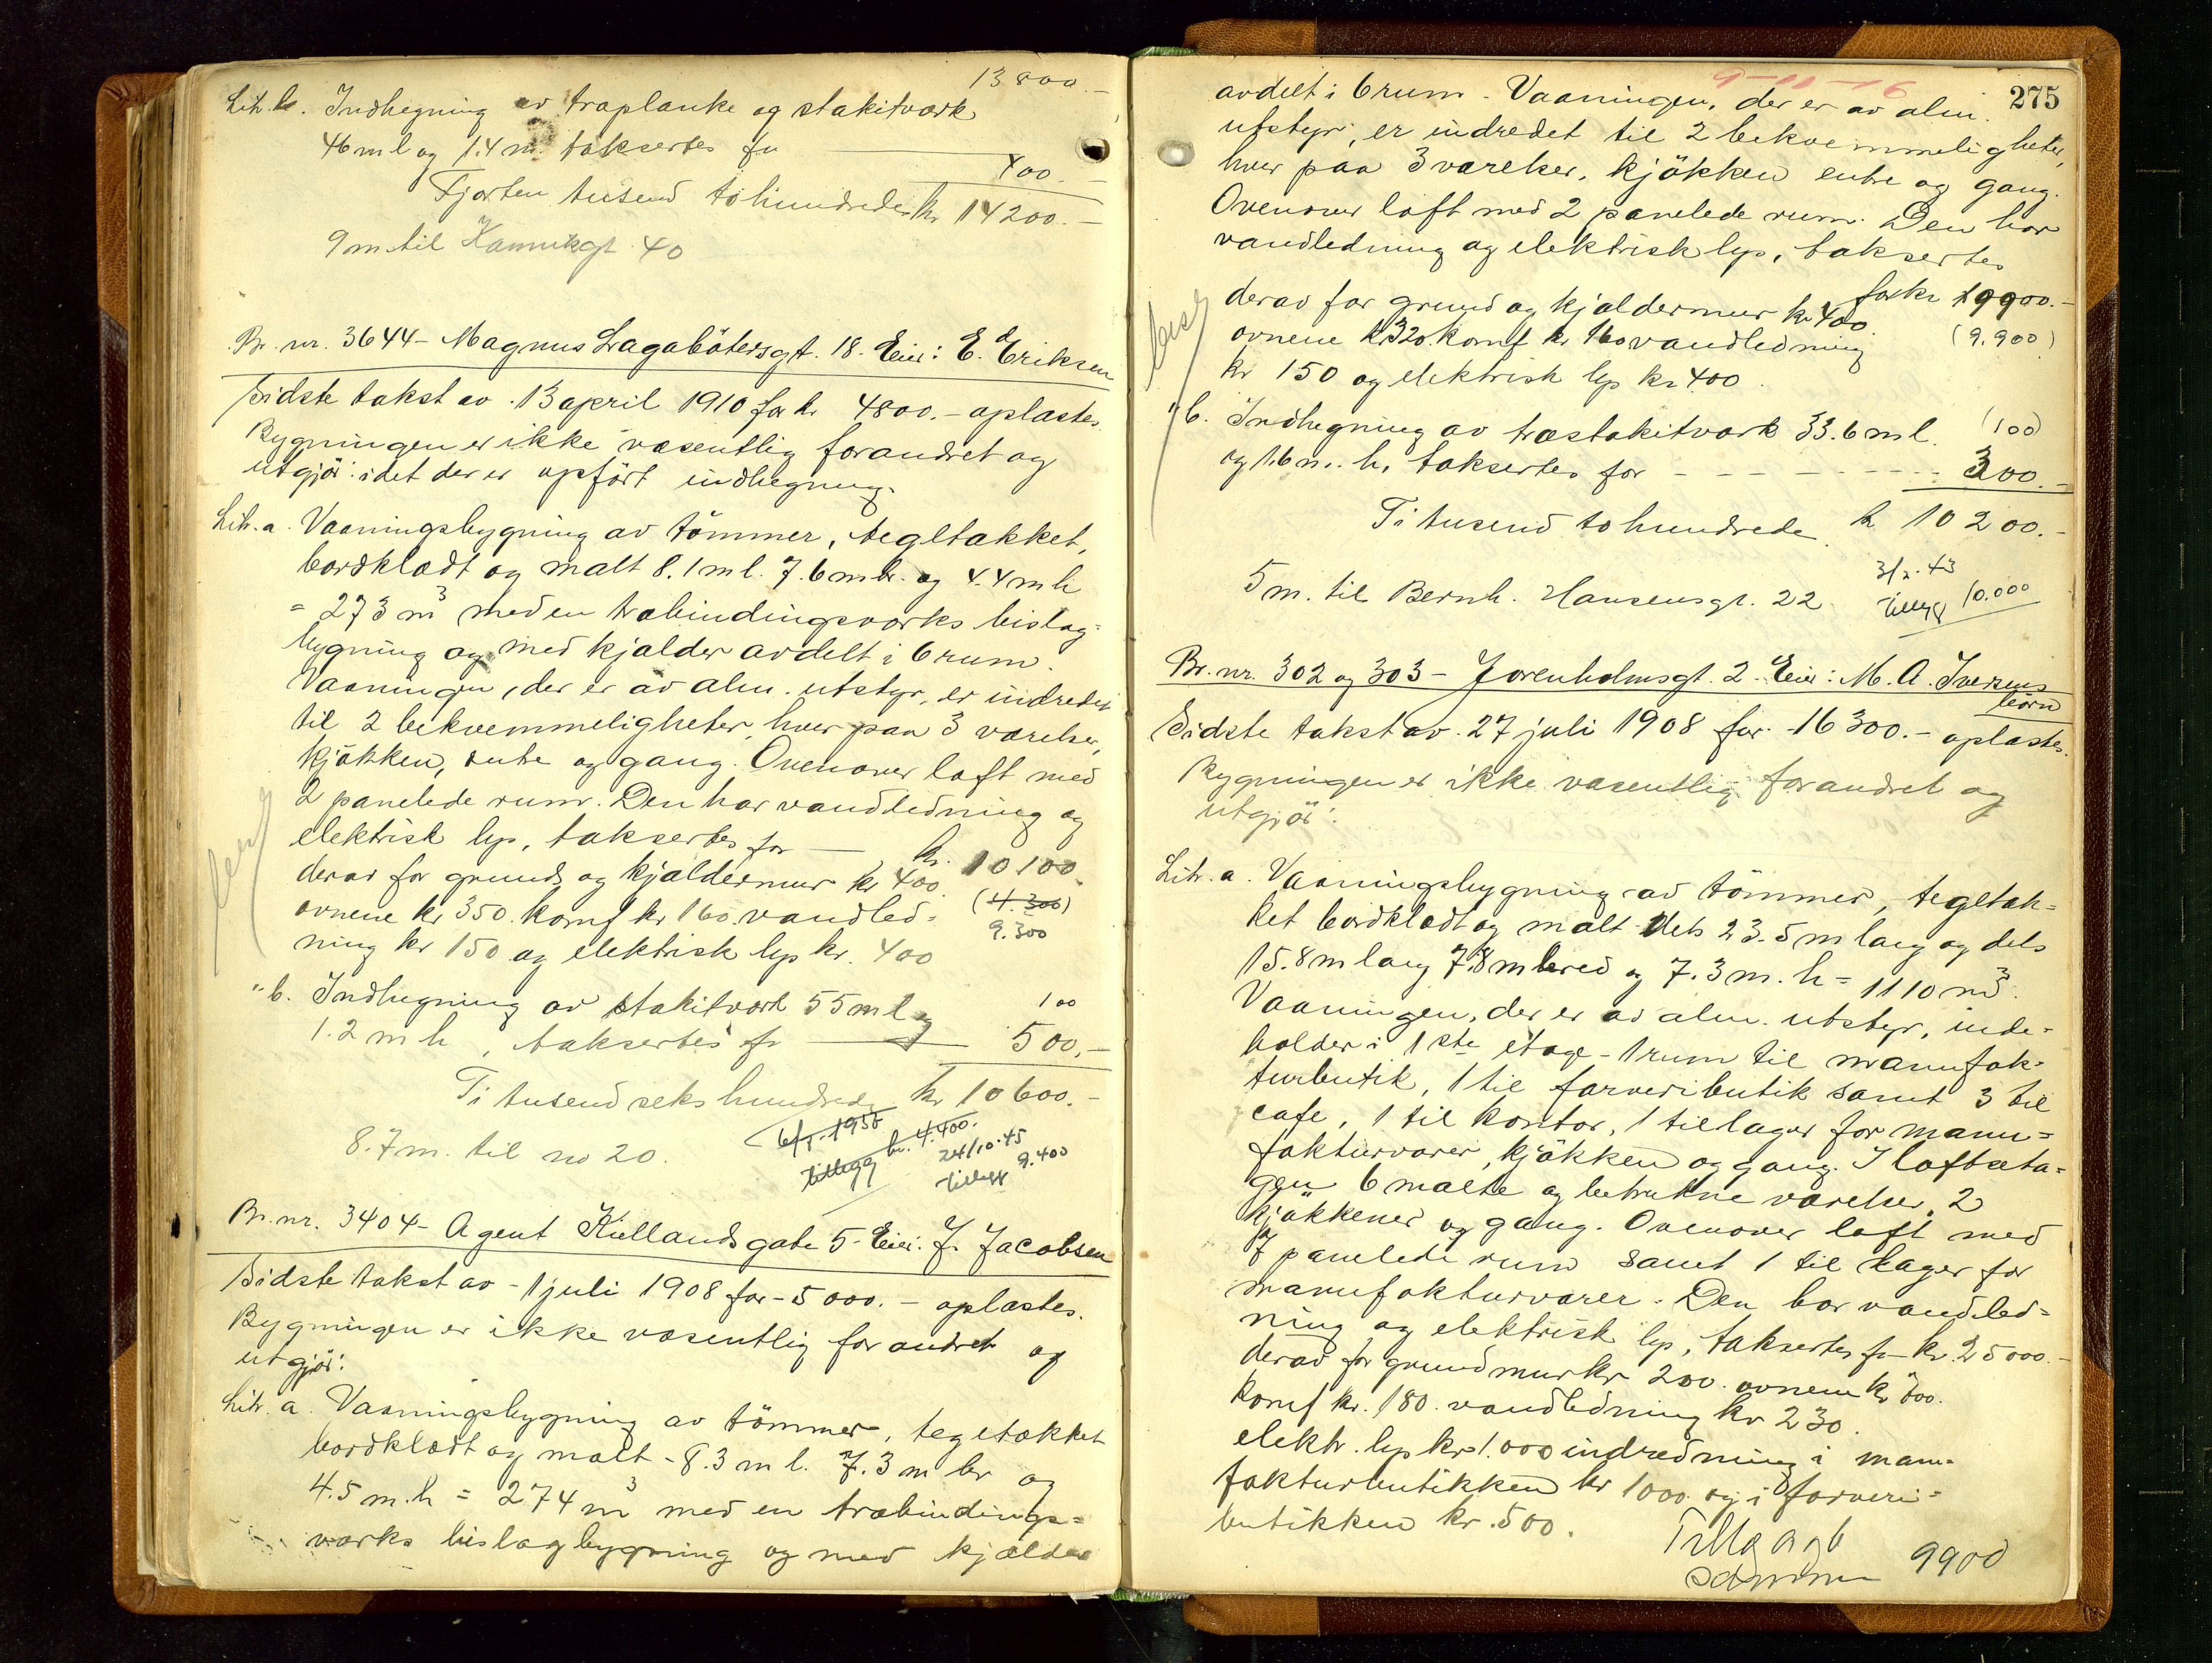 13 800.-
Litr. b. Indhegning av træplanke og stakitværk
46 m l og 1.4 m. taksertes for
400.-
Fjorten tusend tohundrede kr 14200.-
9 m til Kannikgt. 40
Br. nr. 3644 - Magnus Lagabötersgt. 18. Eier: E. Eriksen
Sidste takst av 13 april 1910 for kr 4800.- oplæstes.
Bygningen er ikke væsentlig forandret og
utgjör: idet der er opfört indhegning.
Litr. a. Vaaningsbygning av tömmer, tegltækket,
bordklædt og malt 8.1 m l. 7.6 m br. og 4.4 m h
= 273 m³ med en træbindingsværks bislag=
bygning og med kjælder avdelt i 6 rum.
Vaaningen, der er av alm. utstyr, er indredet
til 2 bekvemmeligheter, hver paa 3 værelser,
kjökken, entre og gang. Ovenover loft med
2 panelede rum. Den har vandledning og
elektrisk lys, taksertes for — kr. 10100.
derav for grund og kjældermur kr 400.
(4.300)
ovnene kr 350. komf kr 160. vandled=
9.300
ning kr 150 og elektrisk lys kr. 400
" b. Indhegning av stakitværk 55 m l og
100
1.2 m h, taksertes for — 500.-
Ti tusend sekshundrede kr 10600.-
8.7 m. til no 20.
1956
tillegg kr. 4.400.
24/10-45
tillegg 9.400
Br. nr. 3404 - Agent Kiellands gate 5 - Eier: J. Jacobsen
Sidste takst av - 1 juli 1908 for - 5000.- oplæstes.
Bygningen er ikke væsentlig forandret og
utgjör:
Litr. a. Vaaningsbygning av tömmer, tegltækket
bordklædt og malt - 8.3 m l. 7.3 m br og
4.5 m. h = 274 m³ med en træbindings=
værks bislagbygning og med kjælder
275
avdelt i 6 rum. Vaaningen, der er av alm.
utstyr, er indredet til 2 bekvemmeligheter,
hver paa 3 værelser, kjökken entre og gang.
Ovenover loft med 2 panelede rum. Den har
vandledning og elektrisk lys, taksertes
for kr 9900.-
derav for grund og kjældermur kr 400.
(9.900)
ovnene kr 320. komf kr 160 vandledning
kr 150 og elektrisk lys kr 400.
" b. Indhegning av træstakitværk 33.6 m l.
(100)
og 1.6 m. h. taksertes for - - - - - 300.-
Ti tusend tohundrede. kr 10200.-
5 m. til Bernh. Hansensgt. 22.
3/2.43
tillegg 10.000
Br. nr. 302 og 303 - Jorenholmsgt. 2. Eier: M. A. Iversens
börn
Sidste takst av 27 juli 1908 for - 16300.- oplæstes.
Bygningen er ikke væsentlig forandret og
utgjör:
Litr. a. Vaaningsbygning av tömmer, tegltæk=
ket bordklædt og malt dels 23.5 m lang og dels
15.8 m lang 7.8 m bred og 7.3 m. h = 1110 m³.
Vaaningen, der er av alm. utstyr, inde=
holder i 1ste etage - 1 rum til manufak=
turbutik, 1 til farveributik samt 3 til
cafe, 1 til kontor, 1 til lager for manu=
fakturvarer, kjökken og gang. I loftseta=
gen 6 malte og betrukne værelser, 2
kjökkener og gang. Ovenover loft med
7 panelede rum samt 1 til lager for
manufakturvarer. Den har vandled=
ning og elektrisk lys, taksertes for kr. 25000.-
derav for grundmur kr 200. ovnene kr 700.
komf kr. 180. vandledning kr 230.
elektr. lys kr 1.000 indredning i manu=
fakturbutikken kr 1000. og i farveri=
butikken kr. 500.
9900